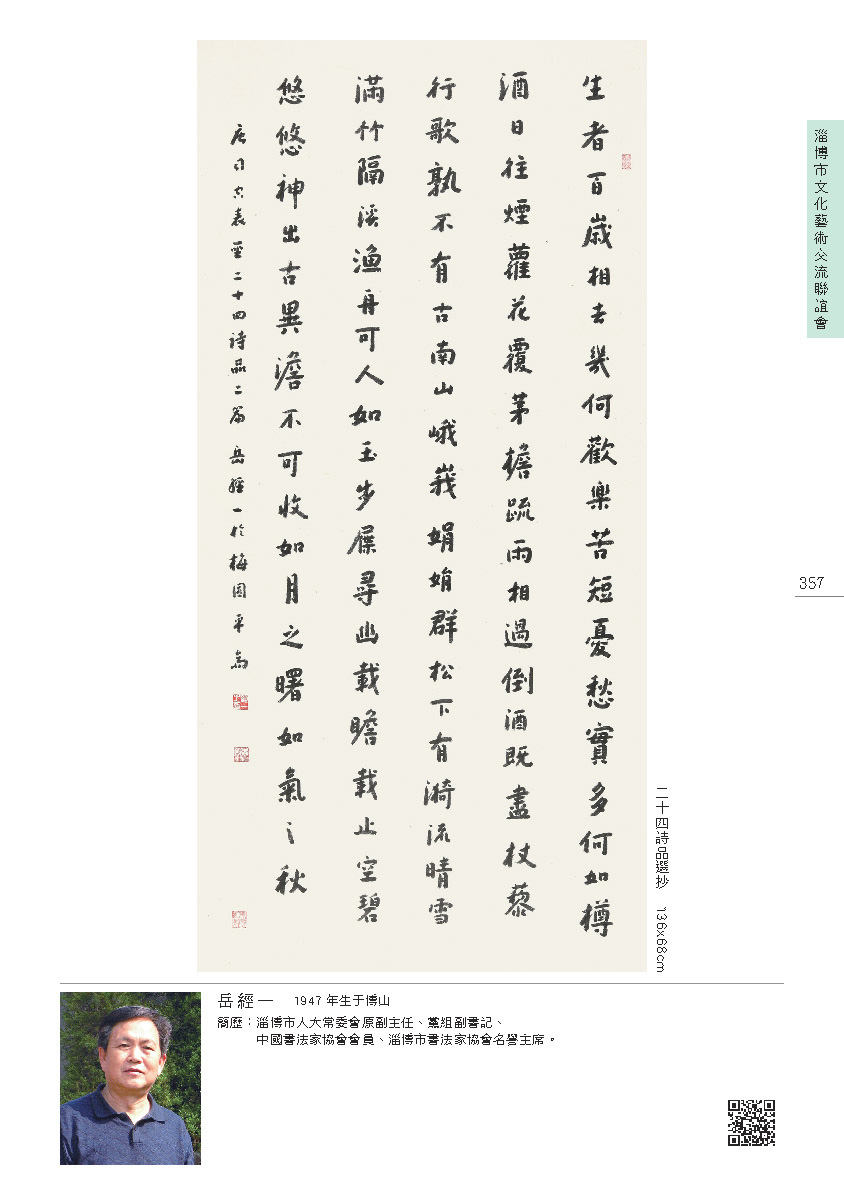 生者百歲相去幾何歡樂苦短憂愁實多何如樽
酒日往煙蘿花覆茅檐疏雨相過倒酒既盡杖藜
行歌孰不有古南山峨峩娟娟群松下有漪流晴雪
滿竹隔溪漁舟可人如玉步屧尋幽載瞻載止空碧
悠悠神出古異澹不可收如月之曙如氣之秋
唐司空表聖二十四詩品二篇 岳經一於梅園平
二十四詩品選抄 136x68cm
淄博市文化藝術交流聯誼會
357
岳經一 1947 年生于博山
簡歷：淄博市人大常委會原副主任、黨組副書記、
中國書法家協會會員、淄博市書法家協會名譽主席。